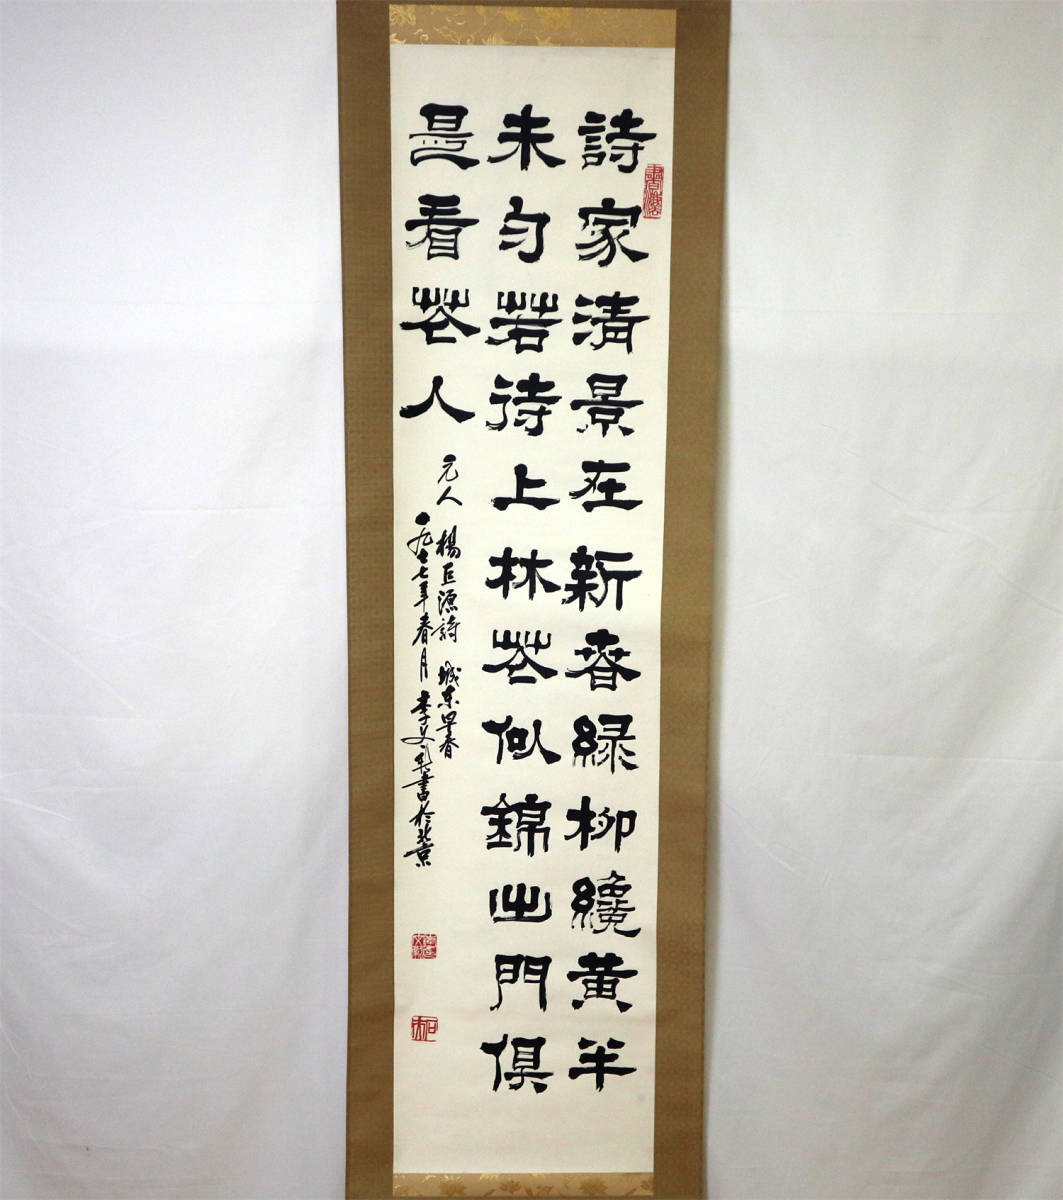 詩家清景在新春綠柳纔黃半
未勻若待上林花似錦出門俱
是看花人
元人 楊巨源詩 城東早春
一九七七年春月 李文新書於北京